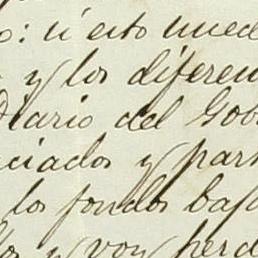 : si esto
y los diferen
Diario del Gob
ciados y par
los fondos baj
y voy perd